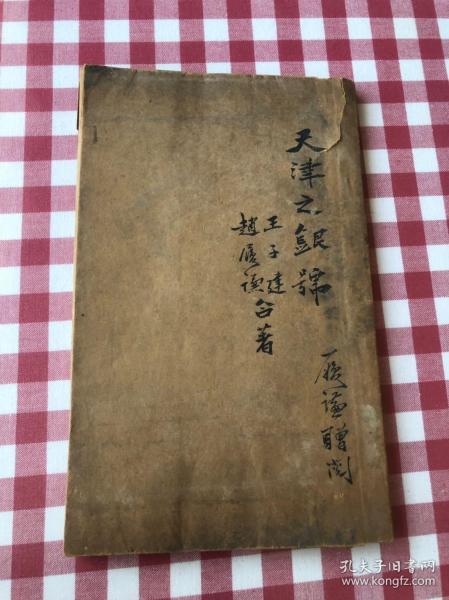 天津之銀號
王子建
趙履謙
合著
履謙贈閱
孔夫子旧书网
www.kongfz.com